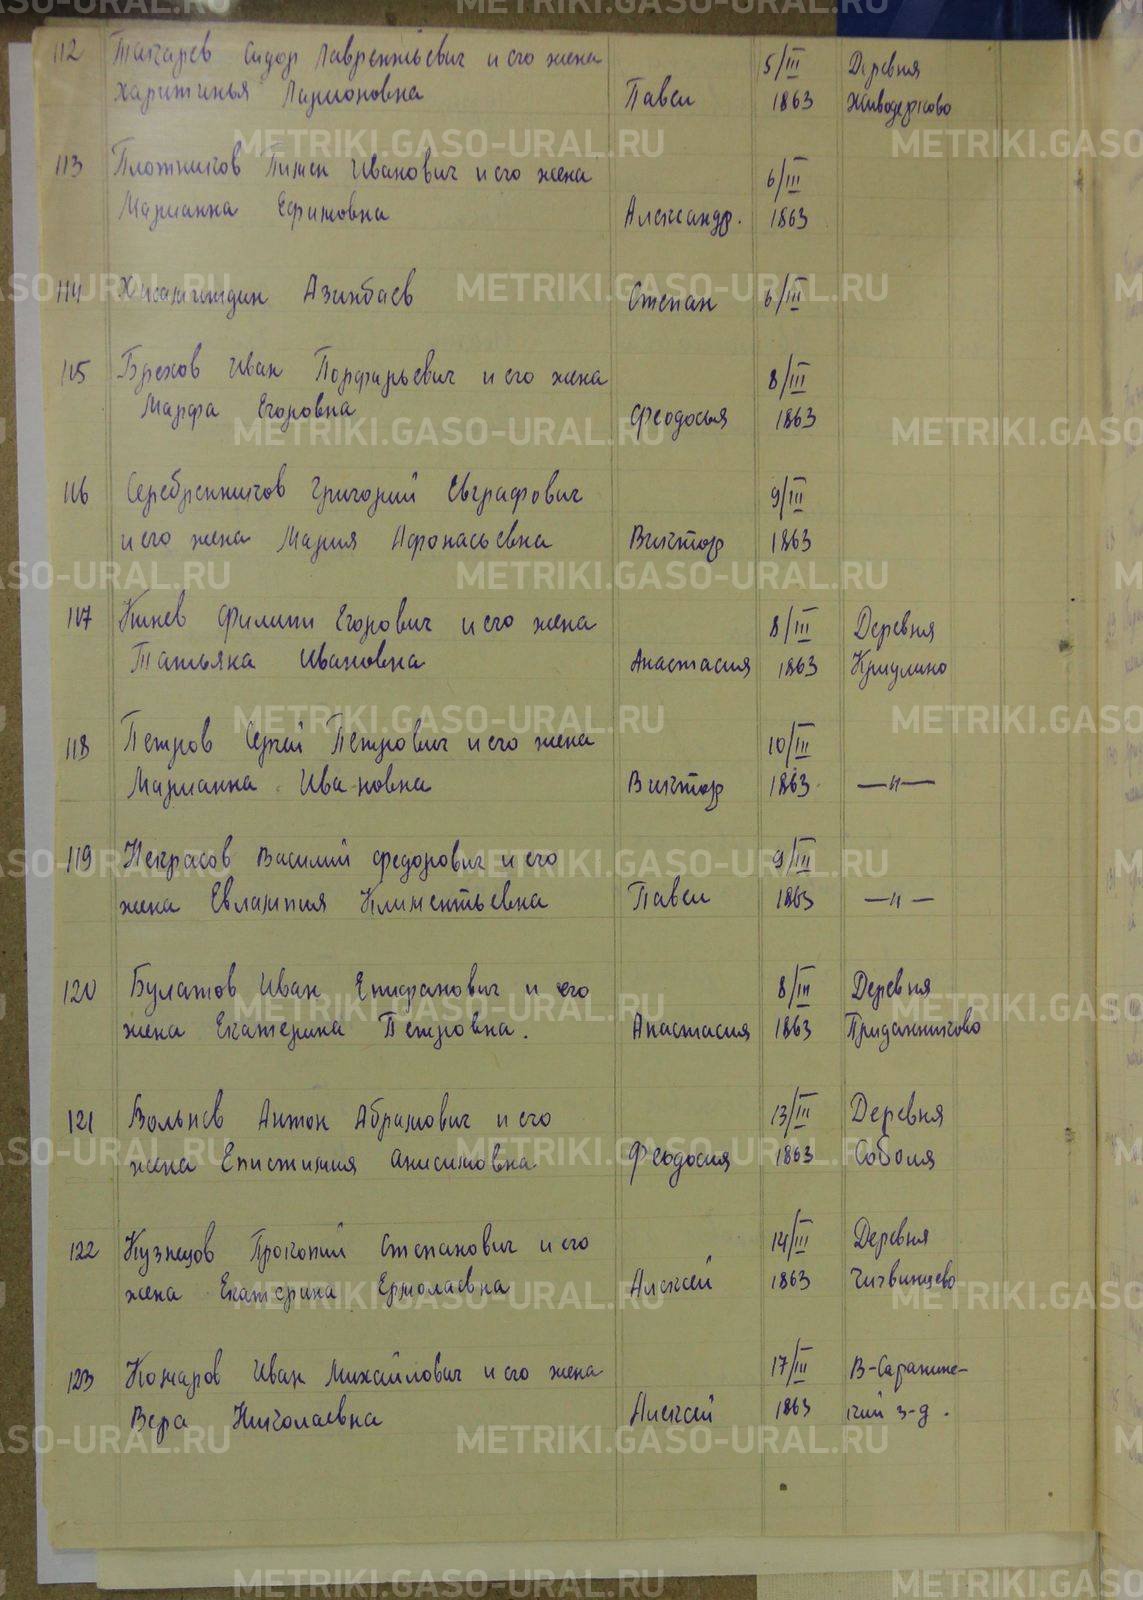 112 Токарев Сидор Лаврентьевич и его жена 5/III Деревня
Харитинья Ларионовна Павел 1863 Живодерково
113 Плотников Пимен Иванович и его жена 6/III
Марианна Ефимовна Александр. 1863
114 Азинбаев Степан 6/III
115 Брехов Иван Порфирьевич и его жена 8/III
Марфа Егоровна Феодосья 1863
116 Серебренников Григорий Евграфович 9/III
и его жена Мария Афонасьевна Виктор 1863
117 Кинев Филипп Егорович и его жена 8/III Деревня
Татьяна Ивановна Анастасия 1863 Криулино
118 Петров Сергей Петрович и его жена 10/III
Марианна Ивановна Виктор 1863 —"—
119 Некрасов Василий Федорович и его 9/III
жена Евлампия Климентьевна Павел 1863 —"—
120 Булатов Иван Епифанович и его 8/III Деревня
жена Екатерина Петровна. Анастасия 1863 Приданниково
121 Вольнев Антон Абрамович и его 13/III Деревня
жена Епистимия Анисимовна Феодосия 1863 Соболя
122 Кузнецов Прокопий Степанович и его 14/III Деревня
жена Екатерина Ермолаевна Алексей 1863 Чигвинцево
123 Комаров Иван Михайлович и его жена 17/III В-Саранинс-
Вера Николаевна Алексей 1863 кий з-д.
METRIKI.GASO-URAL.RU